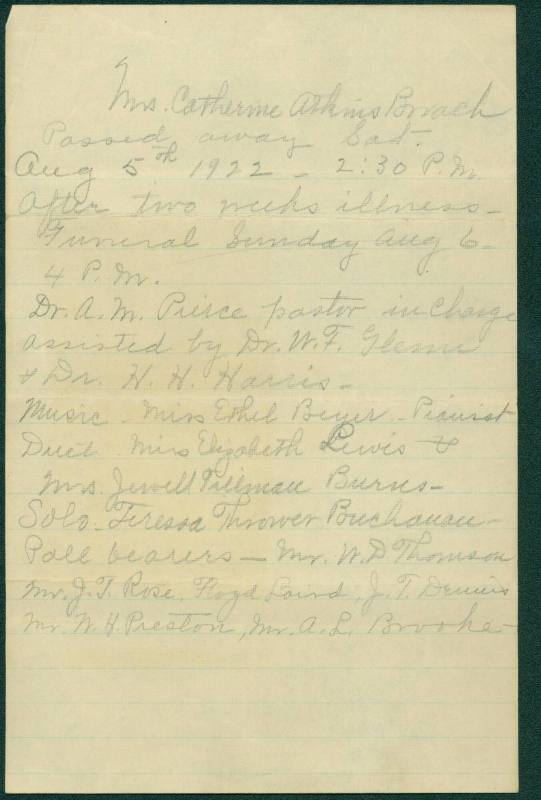 Mrs. Catherine Atkins Broach
Passed away Sat.
Aug 5th 1922 - 2:30 P.M.
After two weeks illness -
Funeral Sunday Aug 6 -
4 P.M.
Dr. A. M. Pierce pastor in charge
assisted by Dr. W. F. Glenn
& Dr. H. H. Harris -
Music - Miss Ethel Beyer - Pianist
Duet Miss Elizabeth Lewis &
Mrs. Jewell Tillman Burns -
Solo - Teressa Thrower Buchanan -
Pall bearers - Mr. W. D. Thomson
Mr. J. T. Rose, Floyd Laird, J. T. Dennis
Mr. W. H. Preston, Mr. A. L. Brooke -